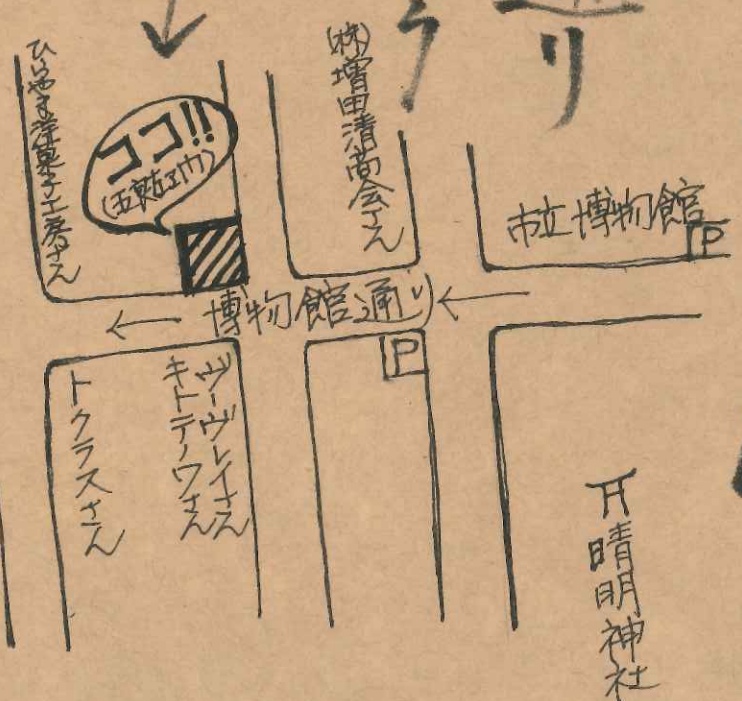 ラ
リ
ひらやま洋菓子工房さん
ココ!!
(五良右エ門)
(株)増田清商会さん
市立博物館
P
博物館通り
P
トクラスさん
ヴーヴレイさん
キトテノワさん
晴明神社